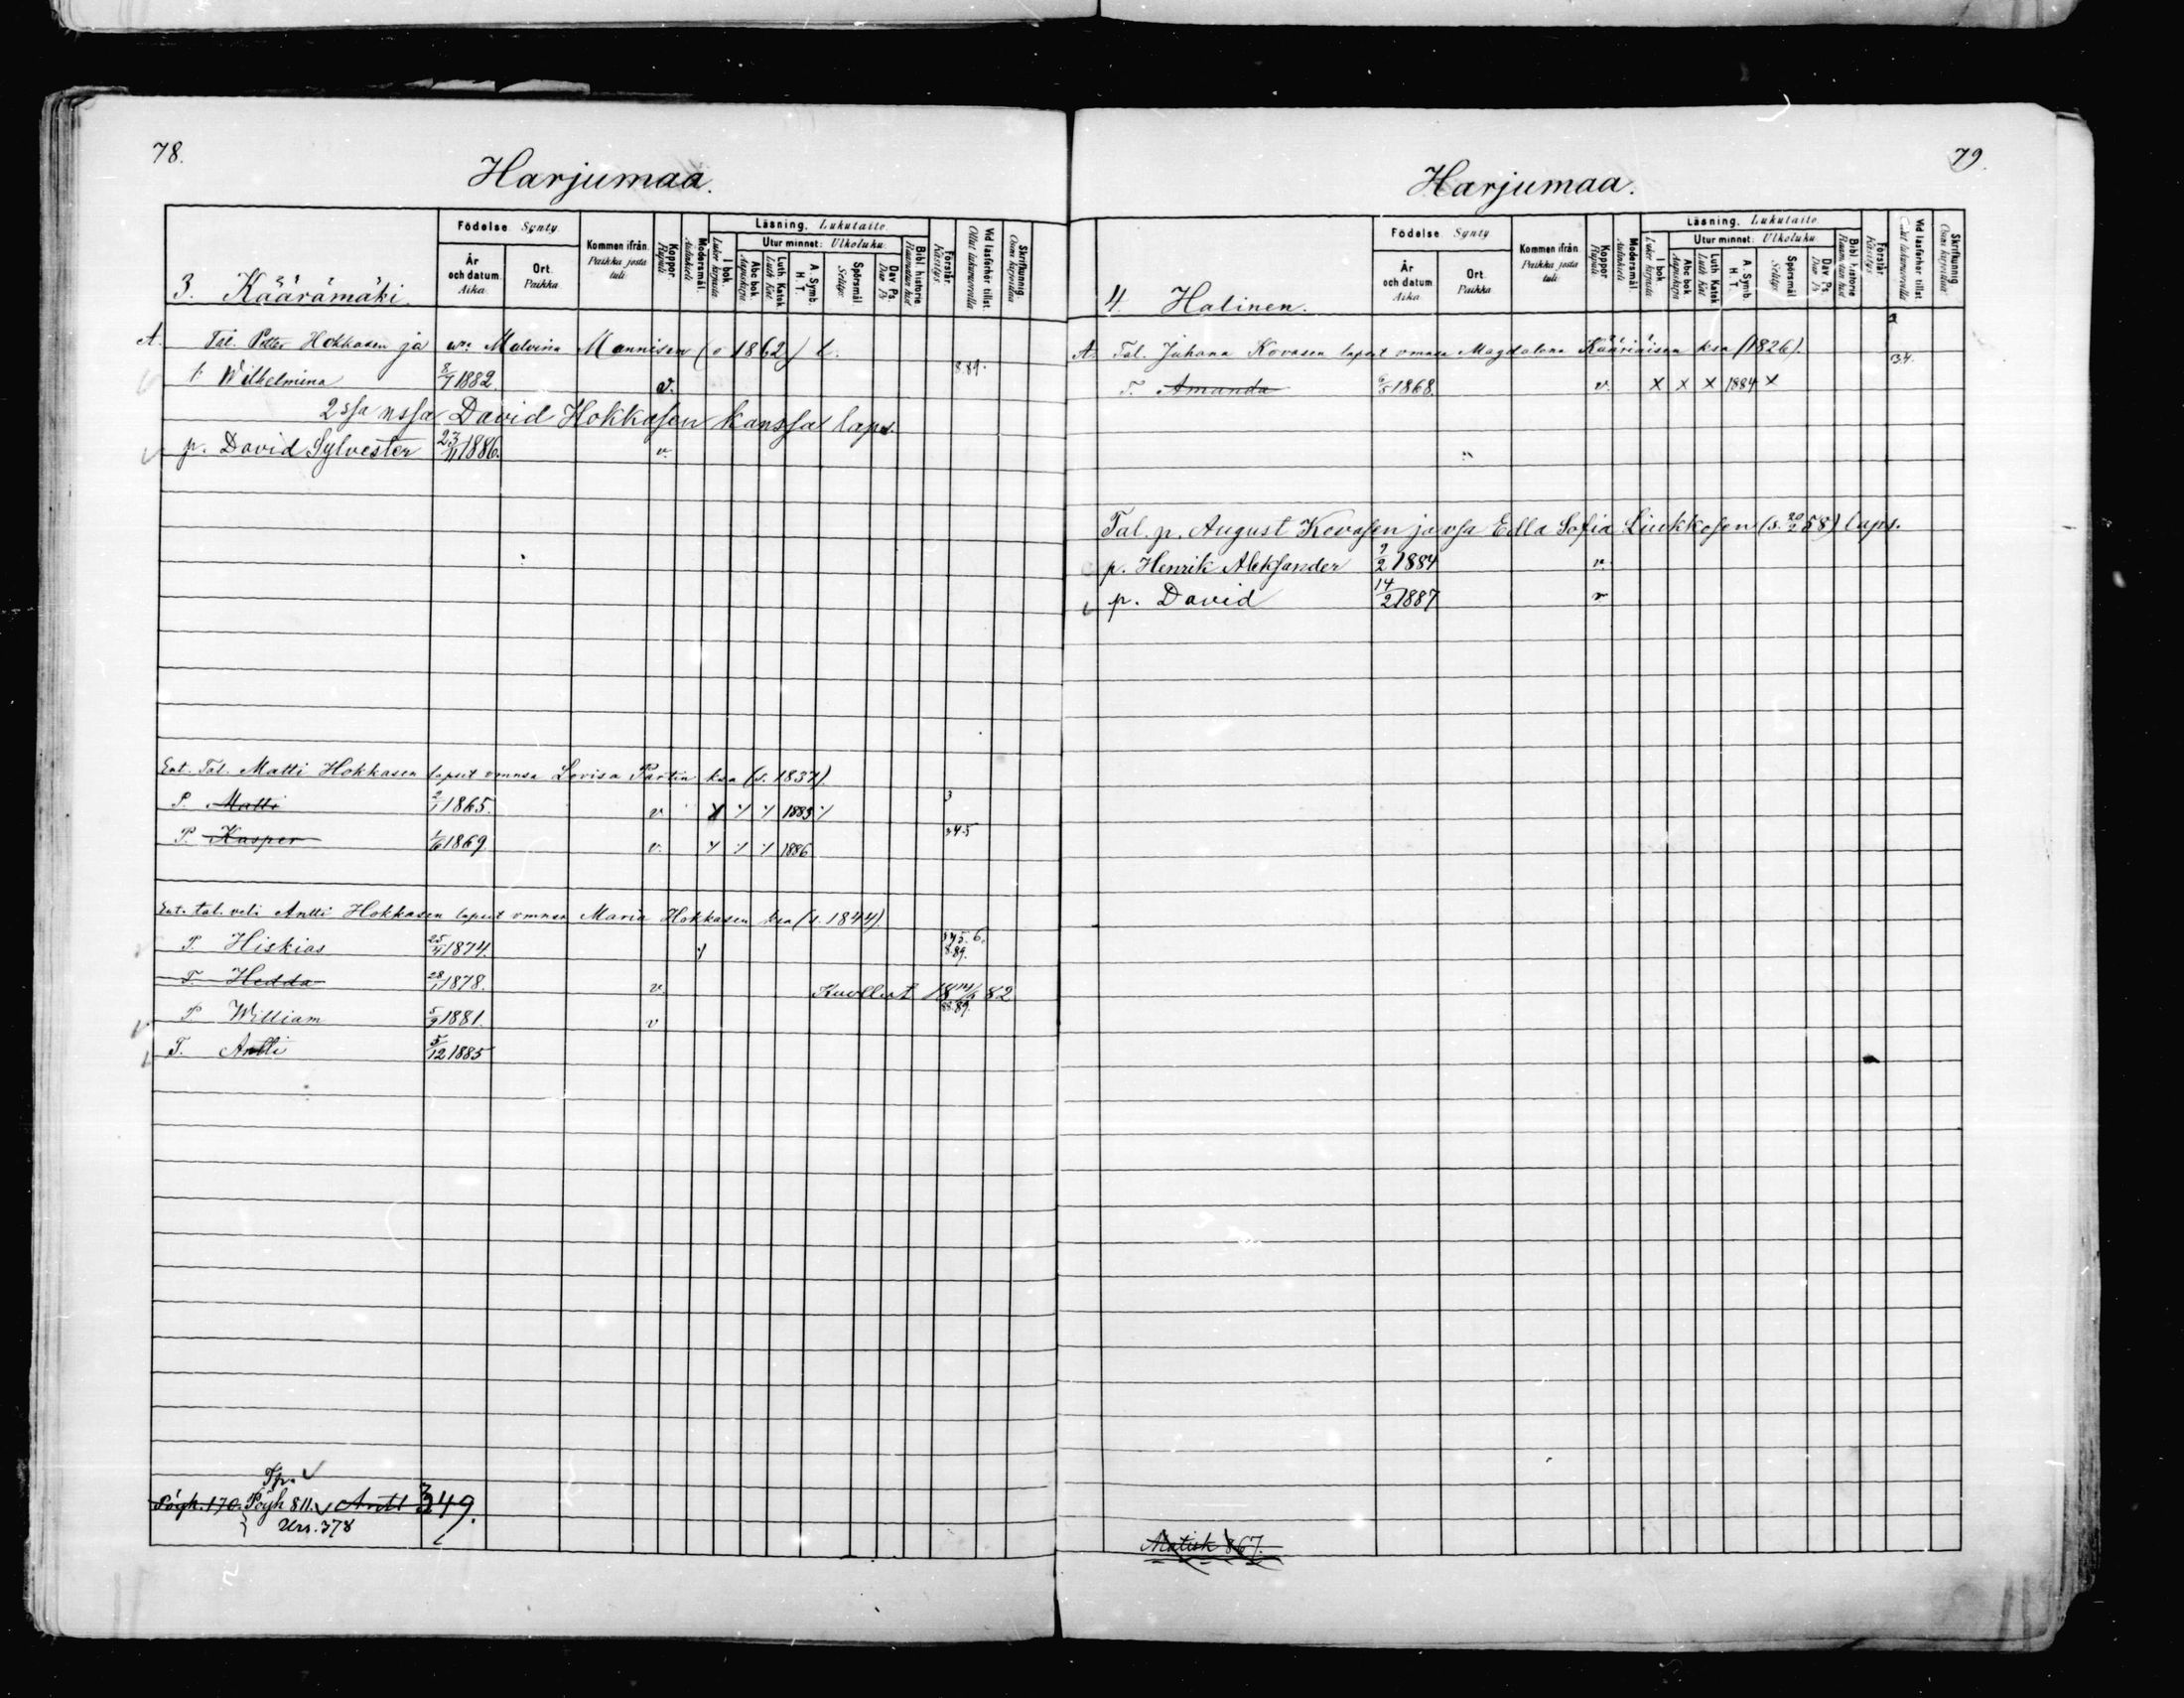 78.
Harjumaa.
3. Käärämäki.
Födelse Synty.
År och datum. Aika.
Ort. Paikka.
Kommen ifrån. Paikka josta tuli.
Koppor. Rupuli
Modersmål. Äidinkieli
Läsning. Lukutaito.
I bok.
Utur minnet: Ulkoluku.
Abc bok. Aapiskirja
Luth. Katek. Luth. Kat.
A. Symb. H. T.
Spörsmål Selitys.
Dav. Ps. Dav. Ps.
Bibl. historie
Förstår. Käsitys.
Vid läsförhör tillst. Ollut lukuvuorolla
Skrifkunnig. Osaa kirjoittaa
A. Tal. Petter Hokkasen ja wn. Malvina Mannisen (s 1862) l.
t. Wilhelmina 8/7 1882. v. 8.89.
2ssa nssa David Hokkasen kanssa laps.
p. David Sylvester 23/11 1886. v.
Ent. Tal. Matti Hokkasen lapset vmnsa Lovisa Partin ksa (s. 1837)
P. Matti 2/1 1865. v 1883 3
P. Kasper 1/6 1869 v. 1886 3 4 5
Ent. tal. veli Antti Hokkasen lapset vmnsa Maria Hokkasen ksa (s. 1844)
P. Hiskias 25/4 1874. 3 4 5. 6. 8.89.
T. Hedda 28/1 1878. v. Kuollut 82
P. William 5/9 1881. v 88.89.
T. Antti 5/12 1885
Tp.
Pöyh. 170. Pöyh 811. Antt 349.
Urs. 378
79.
Harjumaa.
4. Halinen.
Födelse. Synty.
År och datum. Aika
Ort. Paikka.
Kommen ifrån. Paikka josta tuli.
Koppor. Rupuli
Modersmål. Äidinkieli
Läsning. Lukutaito.
I bok.
Utur minnet: Ulkoluku.
Abc bok Aapiskirja
Luth. Katek. Luth. Kat
A. Symb. H. T.
Spörsmål Selitys.
Dav. Ps. Dav. Ps
Bibl. historie
Förstår. Käsitys.
Vid läsförhör tillst.
Skrifkunnig Osaa kirjoittaa
A. Tal. Juhana Kovasen lapset vmnsa Magdalena Kääriäisen ksa (1826).
T. Amanda 6/5 1868. v. x x x 1884 x 3.4.
Tal. p. August Kovasen ja vsa Edla Sofia Liukkosen (s. 20/2 58) laps.
p. Henrik Aleksander 9/2 1884 v.
p. David 14/2 1887 v
Matish 867.